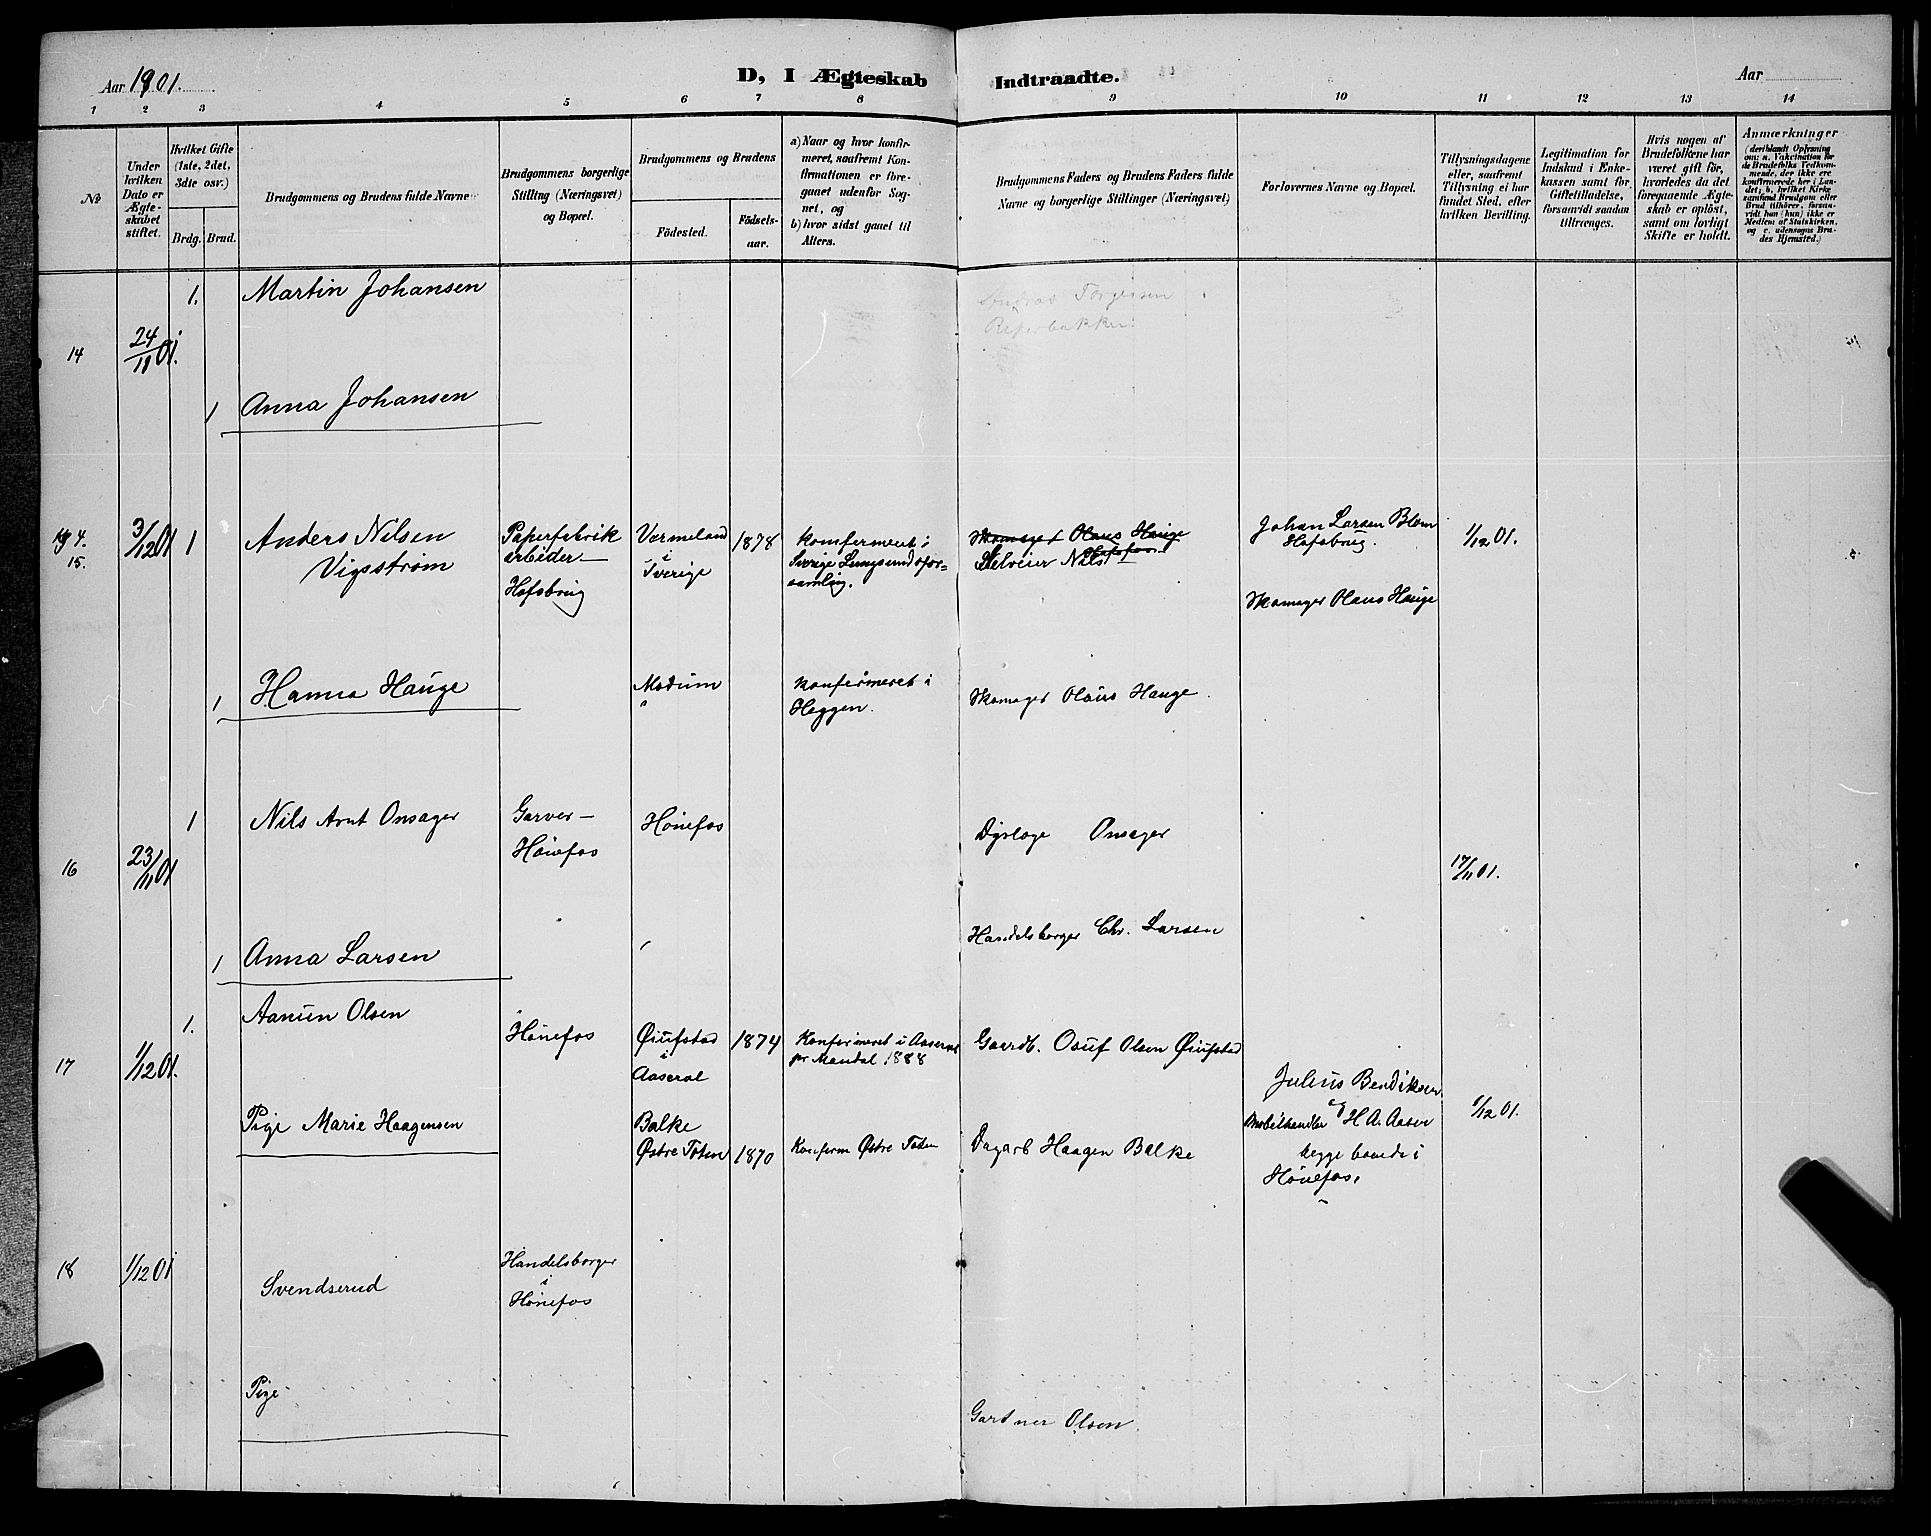 Aar 1901.
D, I Ægteskab Indtraadte.
Aar
1 2 3 4 5 6 7 8 9 10 11 12 13 14
No
Under
hvilken
Dato er
Ægte-
skabet
stiftet.
Hvilket Gifte
(1ste, 2det,
3dte osv.)
Brdg. Brud.
Brudgommens og Brudens fulde Navne
Brudgommens borgerlige
Stilling (Næringsvei)
og Bopæl.
Brudgommens og Brudens
Fødested.
Födsels-
aar.
a) Naar og hvor konfir-
meret, saafremt Kon-
firmationen er fore-
gaaet udenfor Sog-
net, og
b) hvor sidst gaaet til
Alters.
Brudgommens Faders og Brudens Faders fulde
Navne og borgerlige Stillinger (Næringsvei)
Forlovernes Navne og Bopæl.
Tillysningsdagene
eller, saafremt
Tillysning ei har
fundet Sted, efter
hvilken Bevilling.
Legitimation for
Indskud i Enke-
kassen samt for
Giftetilladelse,
forsaavidt saadan
tiltrænges.
Hvis nogen af
Brudefolkene har
været gift før,
hvorledes da det
foregaaende Ægte-
skab er opløst,
samt om lovligt
Skifte er holdt.
Anmærkninger
(deriblandt Oplysning
om: a. Vakcination for
de Brudefolks Vedkom-
mende, der ikke ere
konfirmerede her i Lan-
det; b. hvilket Kirke
samfund Brudgom eller
Brud tilhører, forsaa-
vidt han (hun) ikke er
Medlem af Statskirken,
og c. udensogns Bru-
des Hjemsted.)
14
24/11 01.
1. Martin Johansen
Torgersen
1 Anna Johansen
15.
3/12 01
1
Anders Nilsen
Vigsstrøm
Papirfabrik
arbeider
Hofsbrug
Vermeland
i
Sverige
1878
konfermeret i
Sverige Lungsundsfor-
samling.
Skomager Olaus Hauge
Hofsfos.
Nils
Johan Larsen Blom
Hofsbrug.
Skomager Olaus Hauge
1/12 01.
1 Hanna Hauge
Modum
konfirmeret i
Heggen.
Skomager Olaus Hauge.
16
23/11 01
1
Nils Arnt Onsager
Garver
Hønefos
Hønefos
Dyrlæge Onsager
17/11 01.
1 Anna Larsen
Handelsborger Chr. Larsen
17
1/12 01.
1.
Aanun Olsen
Hønefos
Øiufstad
i
Aaseral
1874
Konfirmeret i Aaseral
pr Mandal 1888
Gaardb. Oouf Olsen Øiufstad
Julius Bendiksen
og
Møbelhandler H A. Aasen
begge boende i
Hønefos.
1/12 01.
Pige Marie Haagensen
Balke
Østre Toten
1870
Konferm Østre Toten
Dagarb Haagen Balke
18
1/12 01
Svendserud
Handelsborger
i
Hønefos
Pige
Gartner Olsen